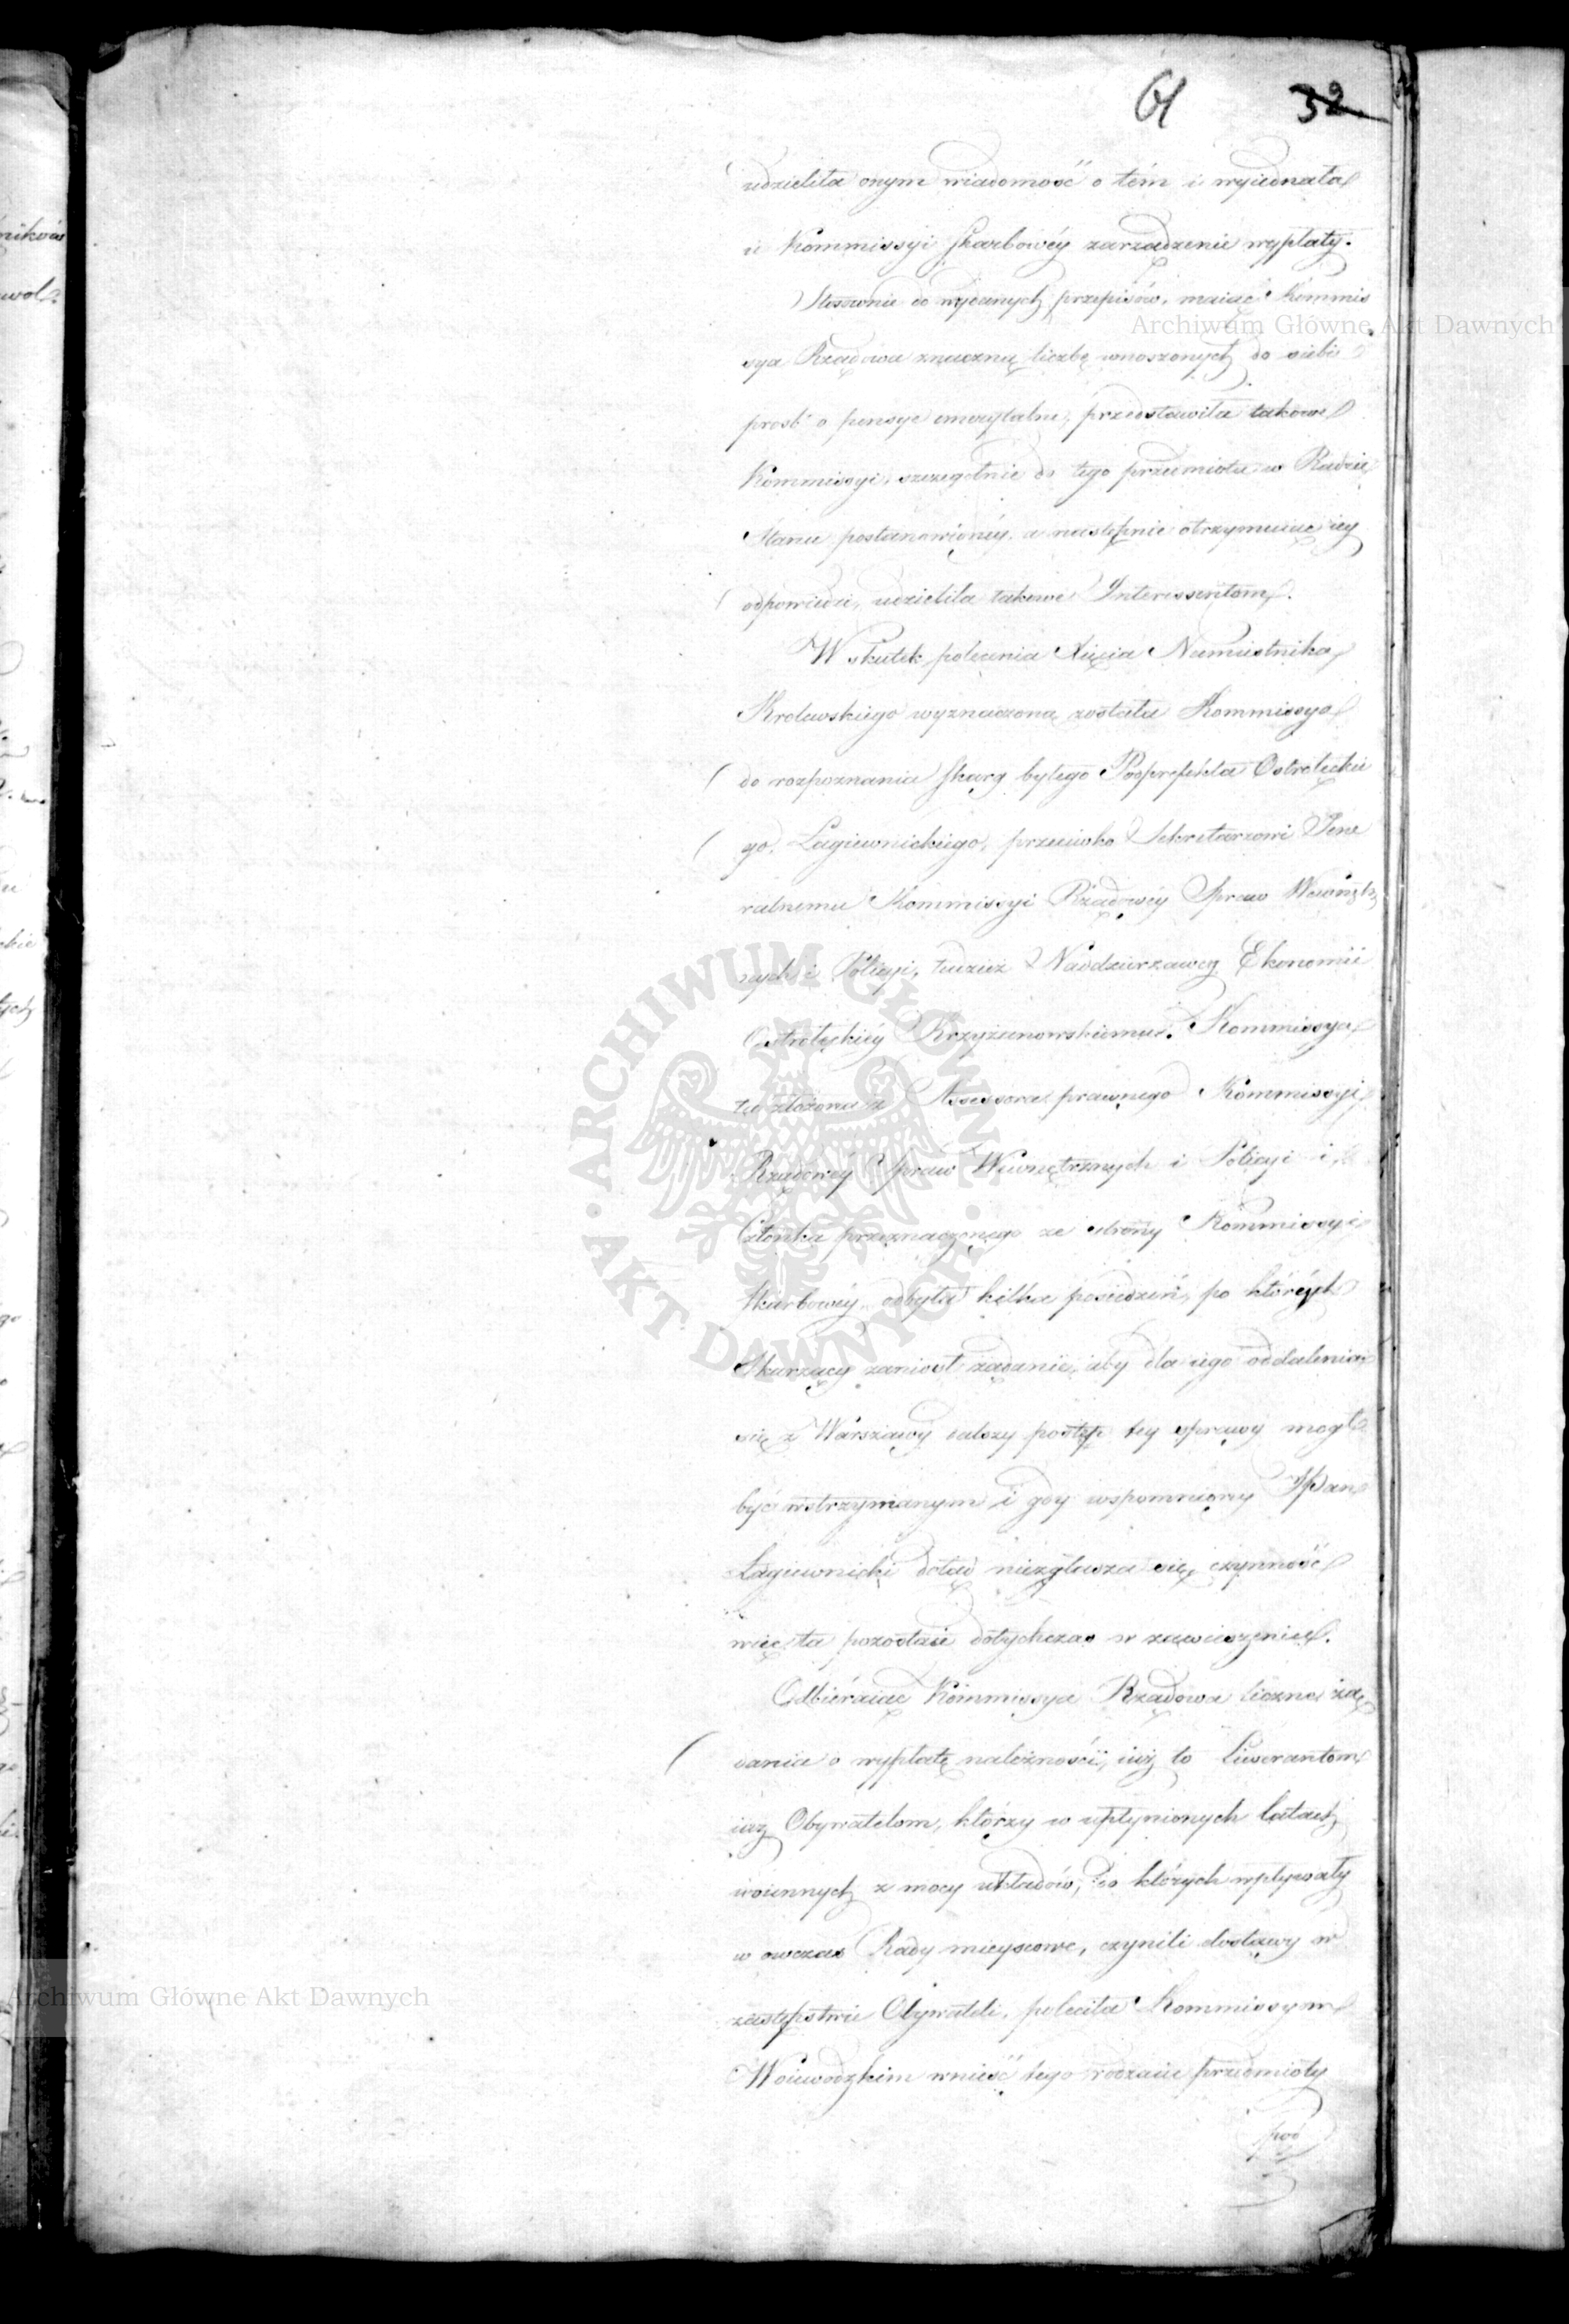 61 32
udzieliła onym wiadomość o tém i wyiednała
u Kommissyi Skarbowéy zarządzenie wypłaty.
Stosownie do wydanych przepisów, maiąc Kommis
sya Rządowa znaczną liczbę wnoszonych do siebie
prosb o pensye emerytalne, przedstawiła takowe
Kommissyi, szczegolnie do tego przedmiotu w Radzie
Stanu postanowionéy, a następnie otrzymuiąc iey
odpowiedzi, udzieliła takowe Interessentom.
W skutek polecenia Xięcia Namiestnika
Krolewskiego wyznaczoną została Kommissya
do rozpoznania skarg byłego Podprefekta Ostrołęckie
go, Łagiewnickiego, przeciwko Sekretarzowi Jene
ralnemu Kommissyi Rządowéy Spraw Wewnętrz
nych i Policyi, tudzież Naddzierzawcy Ekonomii
Ostrołęckiéy Krzyżanowskiemu. Kommissya
ta złożona z Assessora prawnego Kommissyi
Rządowéy Spraw Wewnętrznych i Policyi i
Członka przeznaczonego ze strony Kommissyi
Skarbowéy, odbyła kilka posiedzeń, po których
Skarzący zaniosł żądanie, aby dla iego oddalenia
się z Warszawy dalszy postęp tey sprawy mogł
być wstrzymanym i gdy wspomniony JPan
Łagiewnicki dotąd niezgłasza się, czynność
więc ta pozostaie dotychczas w zawieszeniu.
Odbieraiąc Kommissya Rządowa liczne żą
dania o wypłatę należności, iuż to Liwerantom
iuż Obywatelom, którzy w upłynionych latach
woiennych z mocy układów, do których wpływały
w owczas Rady mieyscowe, czynili dostawy w
zastępstwie Obywateli, poleciła Kommissyom
Woiewodzkim wnieść tego rodzaiu przedmioty
pod
Archiwum Główne Akt Dawnych
ARCHIWUM GŁÓWNE AKT DAWNYCH
Archiwum Główne Akt Dawnych